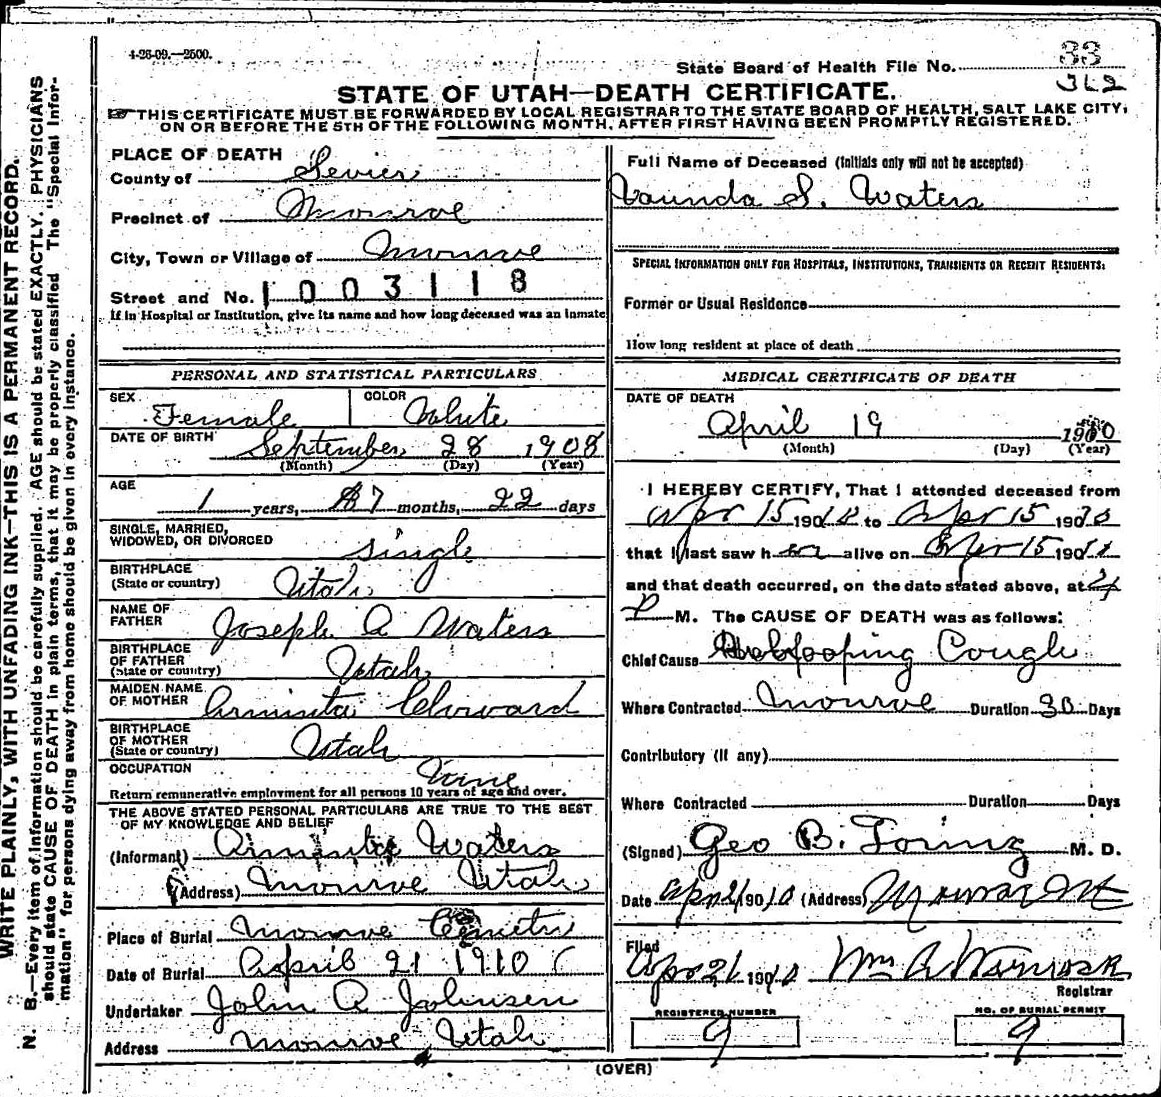 4-26-09.—2500.
State Board of Health File No. 33
362
STATE OF UTAH—DEATH CERTIFICATE.
THIS CERTIFICATE MUST BE FORWARDED BY LOCAL REGISTRAR TO THE STATE BOARD OF HEALTH, SALT LAKE CITY,
ON OR BEFORE THE 5TH OF THE FOLLOWING MONTH, AFTER FIRST HAVING BEEN PROMPTLY REGISTERED.
WRITE PLAINLY, WITH UNFADING INK—THIS IS A PERMANENT RECORD.
N. B.—Every item of information should be carefully supplied. AGE should be stated EXACTLY. PHYSICIANS
should state CAUSE OF DEATH in plain terms, that it may be properly classified. The "Special Infor-
mation" for persons dying away from home should be given in every instance.
PLACE OF DEATH
County of Sevier
Precinct of Monroe
City, Town or Village of Monroe
Street and No. 1003118
If in Hospital or Institution, give its name and how long deceased was an inmate
PERSONAL AND STATISTICAL PARTICULARS
SEX Female COLOR White
DATE OF BIRTH September 28 1908
(Month) (Day) (Year)
AGE
1 years, 7 months, 22 days
SINGLE, MARRIED,
WIDOWED, OR DIVORCED single
BIRTHPLACE
(State or country) Utah
NAME OF
FATHER Joseph A Waters
BIRTHPLACE
OF FATHER
(State or country) Utah
MAIDEN NAME
OF MOTHER Arminta
BIRTHPLACE
OF MOTHER
(State or country) Utah
OCCUPATION None
Return remunerative employment for all persons 10 years of age and over.
THE ABOVE STATED PERSONAL PARTICULARS ARE TRUE TO THE BEST
OF MY KNOWLEDGE AND BELIEF
(Informant) Arminta Waters
(Address) Monroe Utah
Place of Burial Monroe
Date of Burial April 21 1910
Undertaker John A Johnsen
Address Monroe Utah
Full Name of Deceased (Initials only will not be accepted)
Vaunda S. Waters
SPECIAL INFORMATION ONLY FOR HOSPITALS, INSTITUTIONS, TRANSIENTS OR RECENT RESIDENTS:
Former or Usual Residence
How long resident at place of death
MEDICAL CERTIFICATE OF DEATH
DATE OF DEATH
April 19 1910
(Month) (Day) (Year)
I HEREBY CERTIFY, That I attended deceased from
Apr 15 1910 to Apr 15 1910
that I last saw her alive on Apr 15 1910
and that death occurred, on the date stated above, at 2
P M. The CAUSE OF DEATH was as follows:
Chief Cause Whooping Cough
Where Contracted Monroe Duration 30 Days
Contributory (if any)
Where Contracted Duration Days
(Signed) Geo B. M. D.
Date Apr 21 1910 (Address) Monroe Ut
Filed
Apr 21 1910 Wm A Warnock
Registrar
REGISTERED NUMBER NO. OF BURIAL PERMIT
9 9
(OVER)